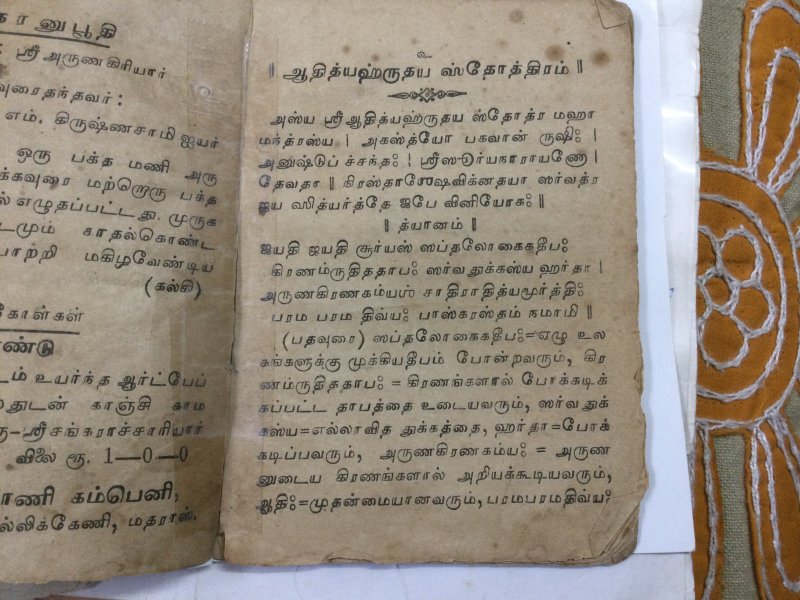 கரனுபூதி
ஸ்ரீ அருணகிரியார்
வுரைதந்தவர் :
எம். கிருஷ்ணசாமி ஐயர்
ஒரு பக்த மணி அரு
க்கவுரை மற்றொரு பக்த
ல் எழுதப்பட்டது. முருக
டமும் காதல்கொண்ட
பாற்றி மகிழவேண்டிய
(கல்கி)
கோள்கள்
ண்டு
டம் உயர்ந்த ஆர்ட்பேப்
துடன் காஞ்சி காம
ரு-ஸ்ரீசங்கராச்சாரியார்
விலை ரூ. 1—0—0
ாணி கம்பெனி,
ல்லிக்கேணி, மதராஸ்.
உ
॥ ஆதித்யஹ்ருதய ஸ்தோத்திரம் ॥
அஸ்ய ஸ்ரீ ஆதித்யஹ்ருதய ஸ்தோத்ர மஹா
மந்த்ரஸ்ய | அகஸ்த்யோ பகவான் ருஷிஃ |
அனுஷ்டுப் ச்சந்தஃ | ஸ்ரீஸூர்யநாராயணே |
தேவதா ॥ நிரஸ்தாஶேஷவிக்னதயா ஸர்வத்ர
ஜய ஸித்யர்த்தே ஜபே வினியோகஃ ॥
॥ த்யானம் ॥
ஜயதி ஜயதி சூர்யஸ் ஸப்தலோகைகதீபஃ
கிரணம்ருதிததாபஃ ஸர்வதுக்கஸ்ய ஹர்தா |
அருணகிரணகம்யஶ் சாதிராதித்யமூர்த்திஃ
பரம பரம திவ்யஃ பாஸ்கரஸ்தம் நமாமி ॥
(பதவுரை) ஸப்தலோகைகதீபஃ=ஏழு உல
கங்களுக்கு முக்கியதீபம் போன்றவரும், கிர
ணம்ருதிததாபஃ = கிரணங்களால் போக்கடிக்
கப்பட்ட தாபத்தை உடையவரும், ஸர்வ துக்
கஸ்ய=எல்லாவித துக்கத்தை, ஹர்தா=போக்
கடிப்பவரும், அருணகிரணகம்யஃ = அருண
னுடைய கிரணங்களால் அறியக்கூடியவரும்,
ஆதிஃ=முதன்மையானவரும், பரமபரமதிவ்யஃ